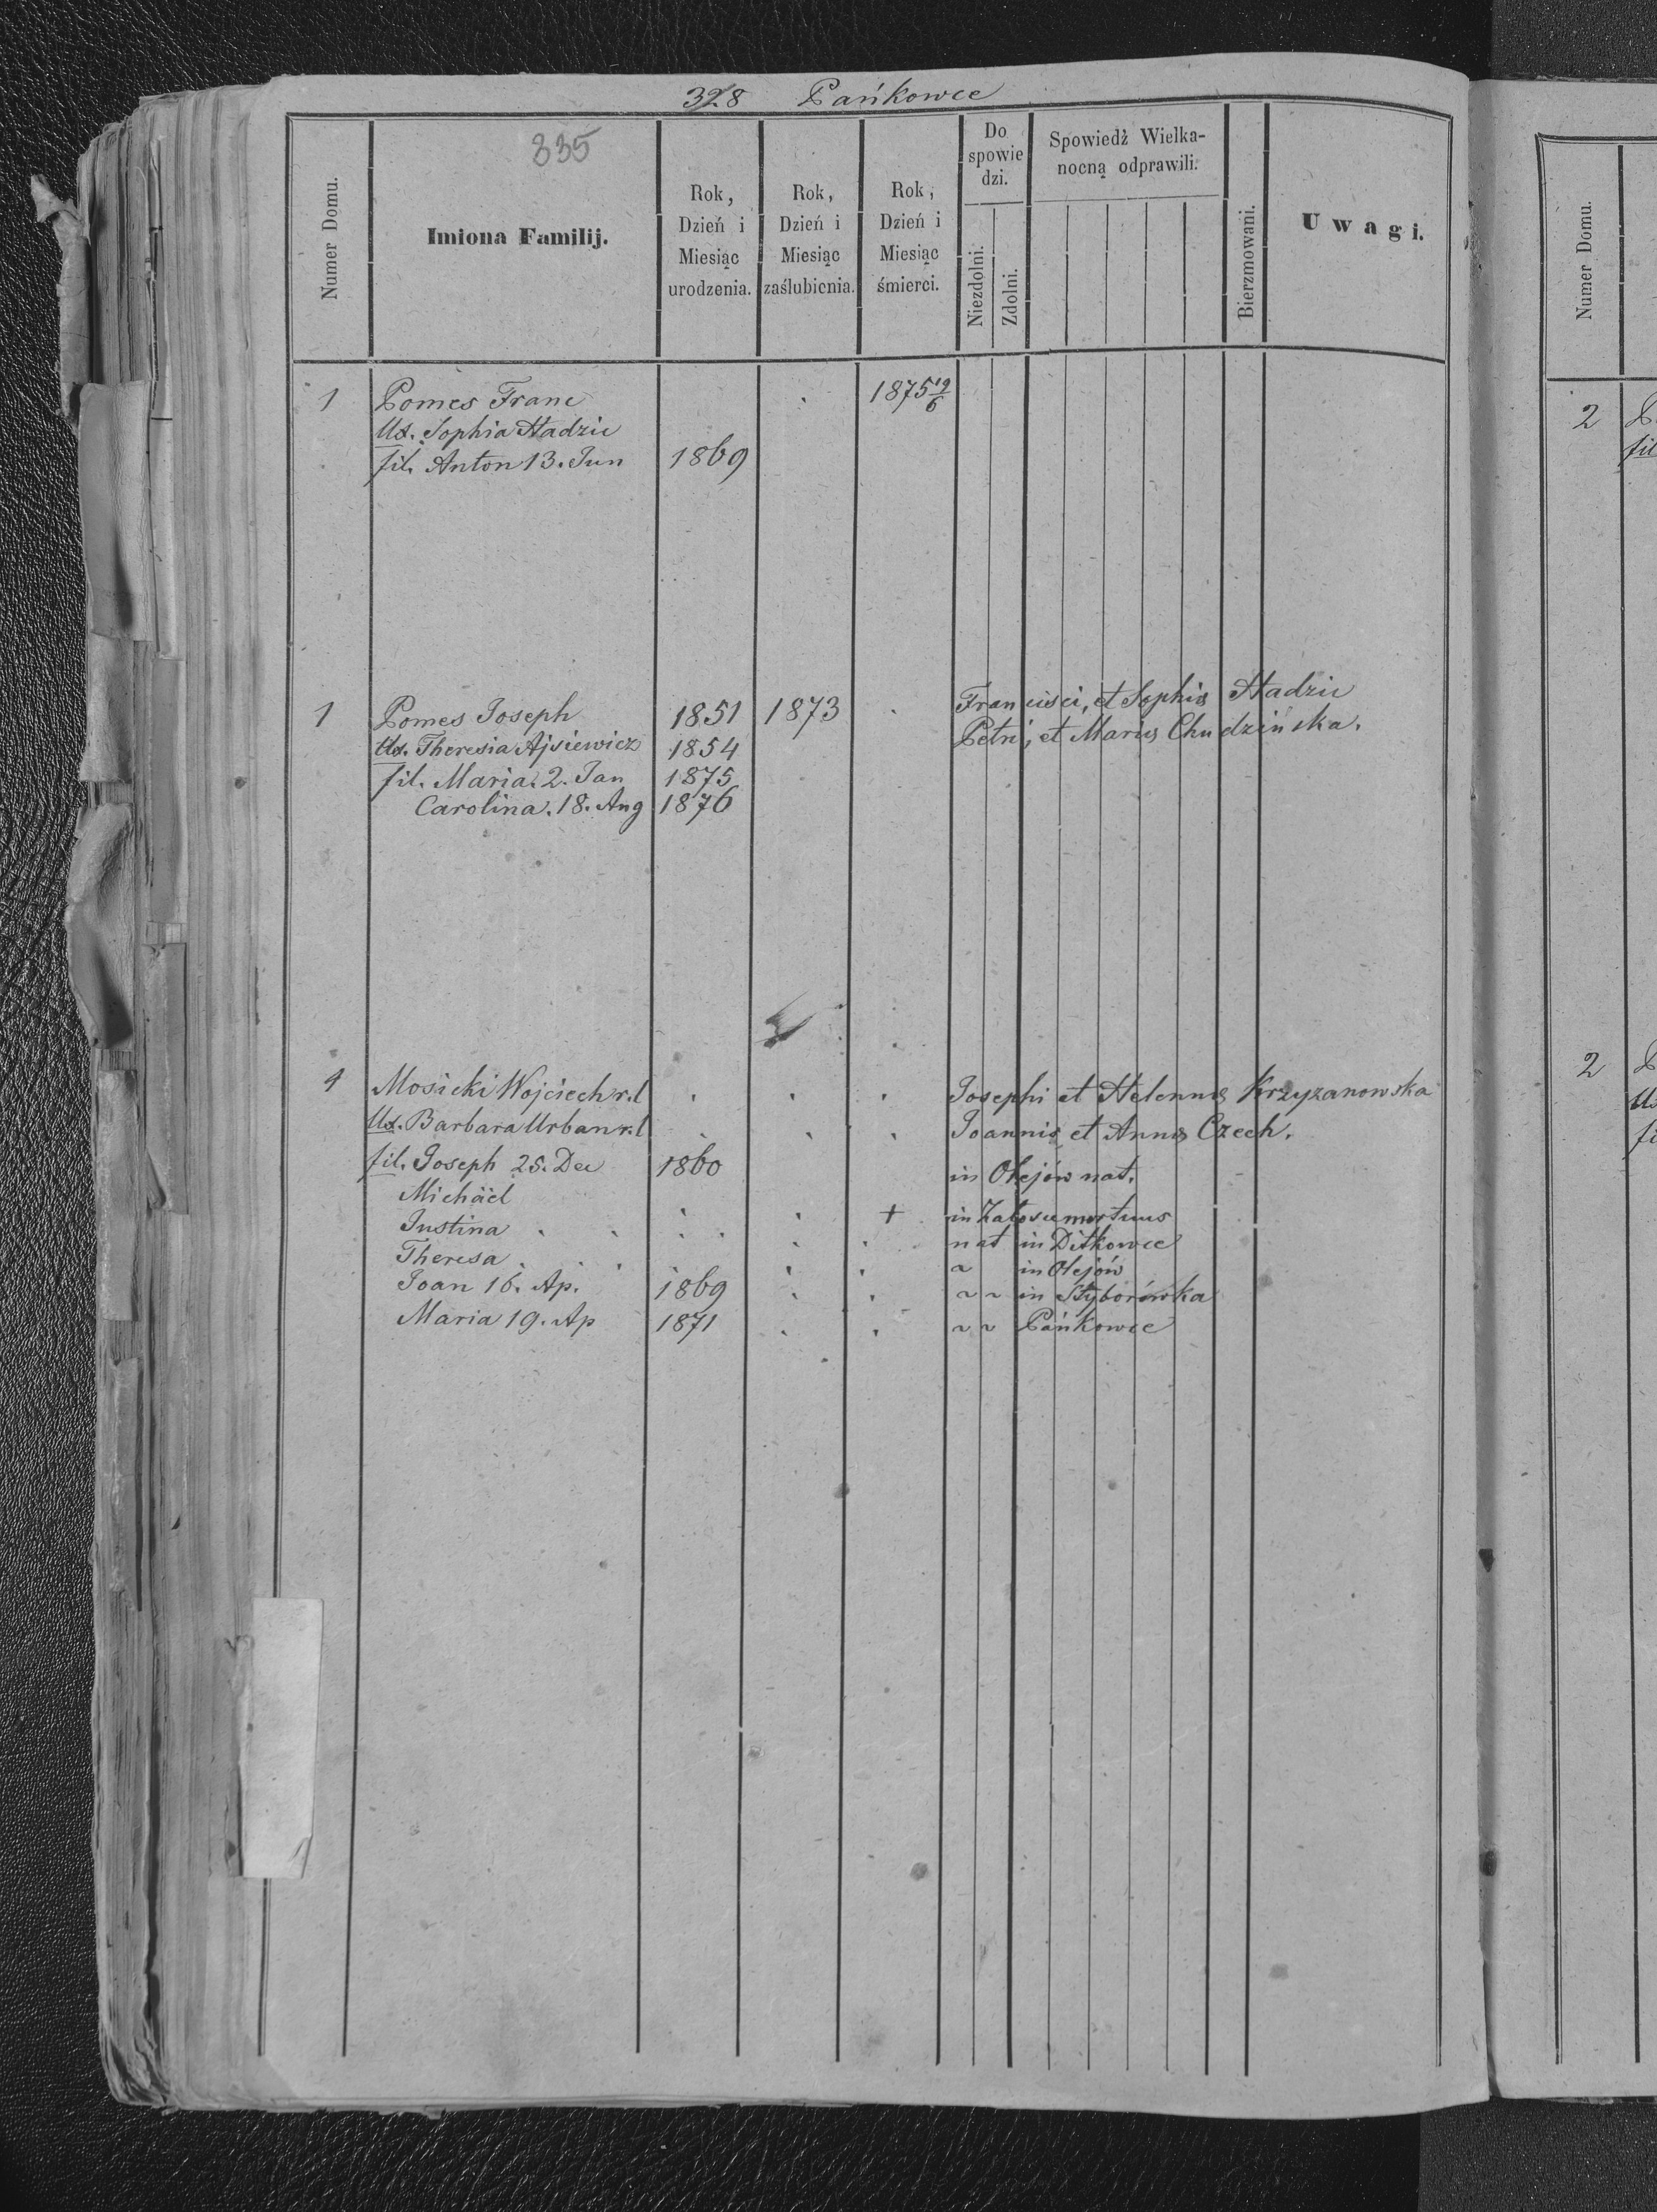 328 Pańkowce
335
Numer Domu.
Imiona Familij.
Rok, Dzień i Miesiąc urodzenia.
Rok, Dzień i Miesiąc zaślubienia.
Rok, Dzień i Miesiąc śmierci.
Do spowiedzi.
Niezdolni.
Zdolni.
Spowiedź Wielkanocną odprawili.
Bierzmowani.
Uwagi.
1 Pomes Franc 1875 19/6
Ux. Sophia Hadziu
fil. Anton 13. Jun 1869
1 Pomes Joseph 1851 1873 Francisci, et Sophia Hadziu
Ux. Theresia Ajsiewicz 1854 Petri, et Maria Chudzińska.
fil. Maria. 2. Jan 1875
Carolina. 18. Aug 1876
4 Mosicki Wojciech r.l Josephi et Helenna Krzyzanowska
Ux. Barbara Urban r.l Joannis et Anna Czech.
fil. Joseph 25. Dec 1860 in Olejów nat.
Michäel + in mortuus
Justina nat in Ditkowce
Theresa ~ in Olejów
Joan 16. Ap. 1869 ~ ~ in Styborówka
Maria 19. Ap 1871 ~ ~ Pańkowce
Numer Domu.
2
fil
2
Ux
fi